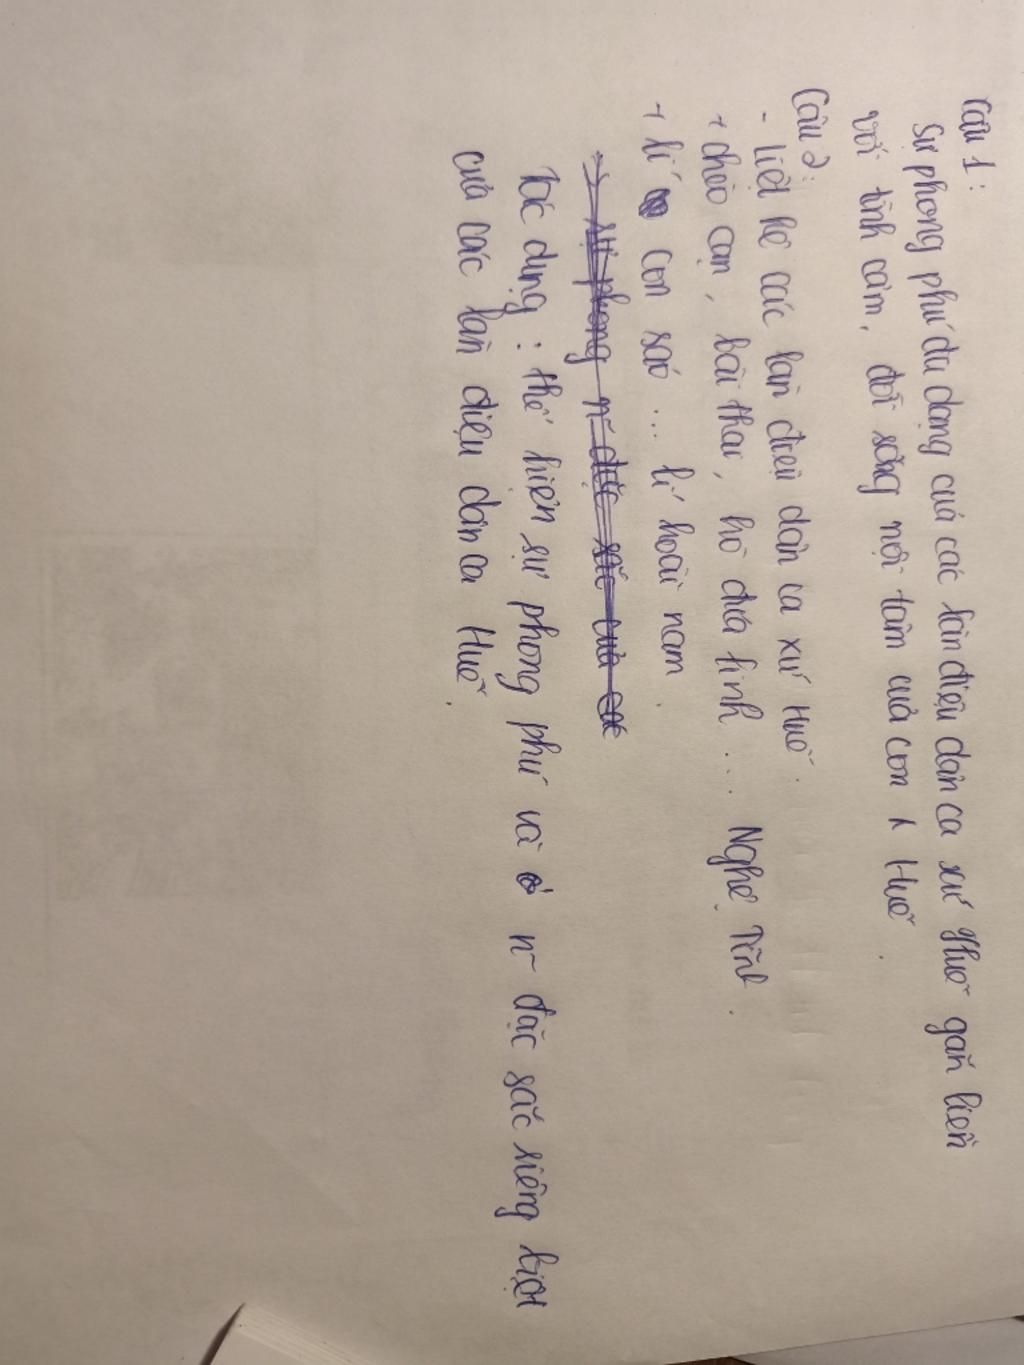 Câu 1:
Sự phong phú đa dạng của các làn điệu dân ca xứ Huế gắn liền
với tình cảm, đời sống nội tâm của con Huế.
Câu 2:
- liệt kê các làn điệu dân ca xứ Huế.
+ chèo cạn, bài thai, hò đưa linh ... Nghệ Tĩnh.
+ lí con sáo ... lí hoài nam.
=> sự phong n~ đặc sắc của các
Tác dụng: thể hiện sự phong phú và n~ đặc sắc riêng biệt
của các làn điệu dân ca Huế.